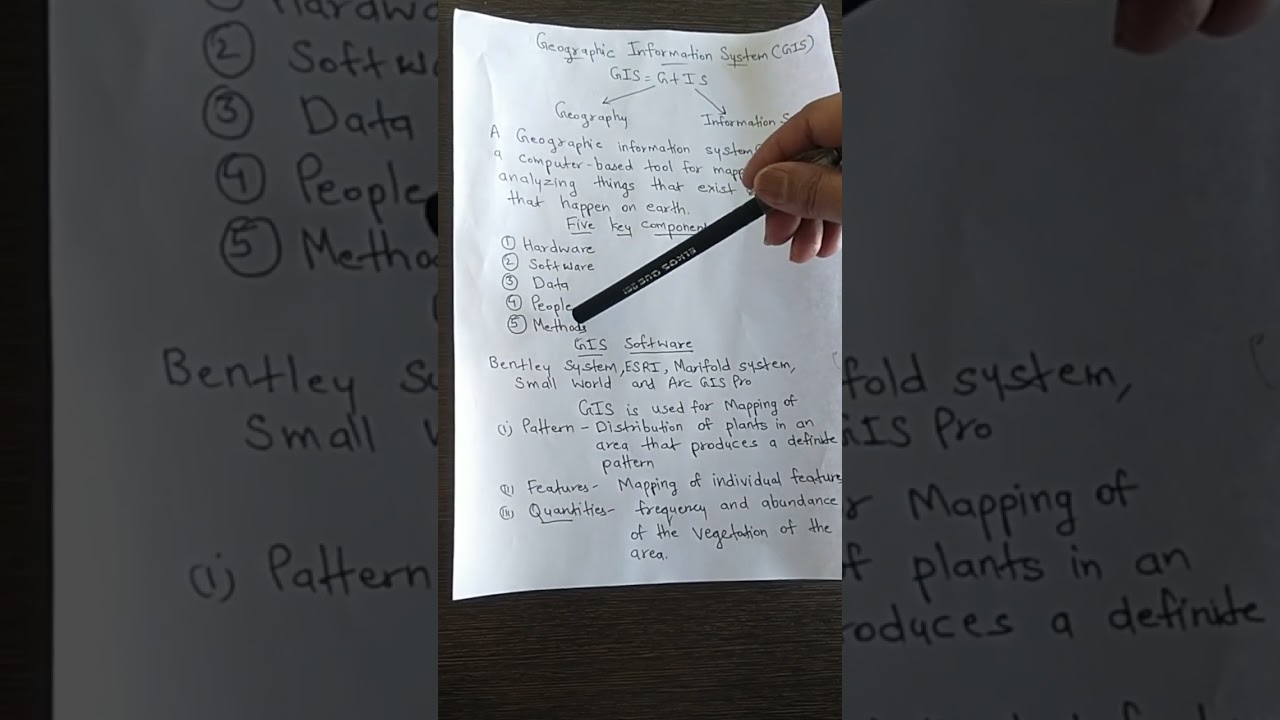 Geographic Information System (GIS)
GIS = G+IS
Geography Information S
A Geographic information system
a computer-based tool for mapp
analyzing things that exist
that happen on earth.
Five key component
① Hardware
② Software
③ Data
④ People
⑤ Methods
GIS Software
Bentley System, ESRI, Manifold system,
Small World and Arc GIS Pro
GIS is used for Mapping of
(i) Pattern - Distribution of plants in an
area that produces a definite
pattern
(ii) Features- Mapping of individual feature
(iii) Quantities- frequency and abundance
of the vegetation of the
area.